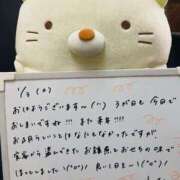 1/3 (水)
おはようございますm(__)m 3が日も今日で
おしまいですね!!! また来年!!!!
お正月らしいことはなにもなかったですが、
実家から届いたお雑煮とおせちの味で
ほっとしました\(^o^)/ 良い1日を〜\(^o^)/